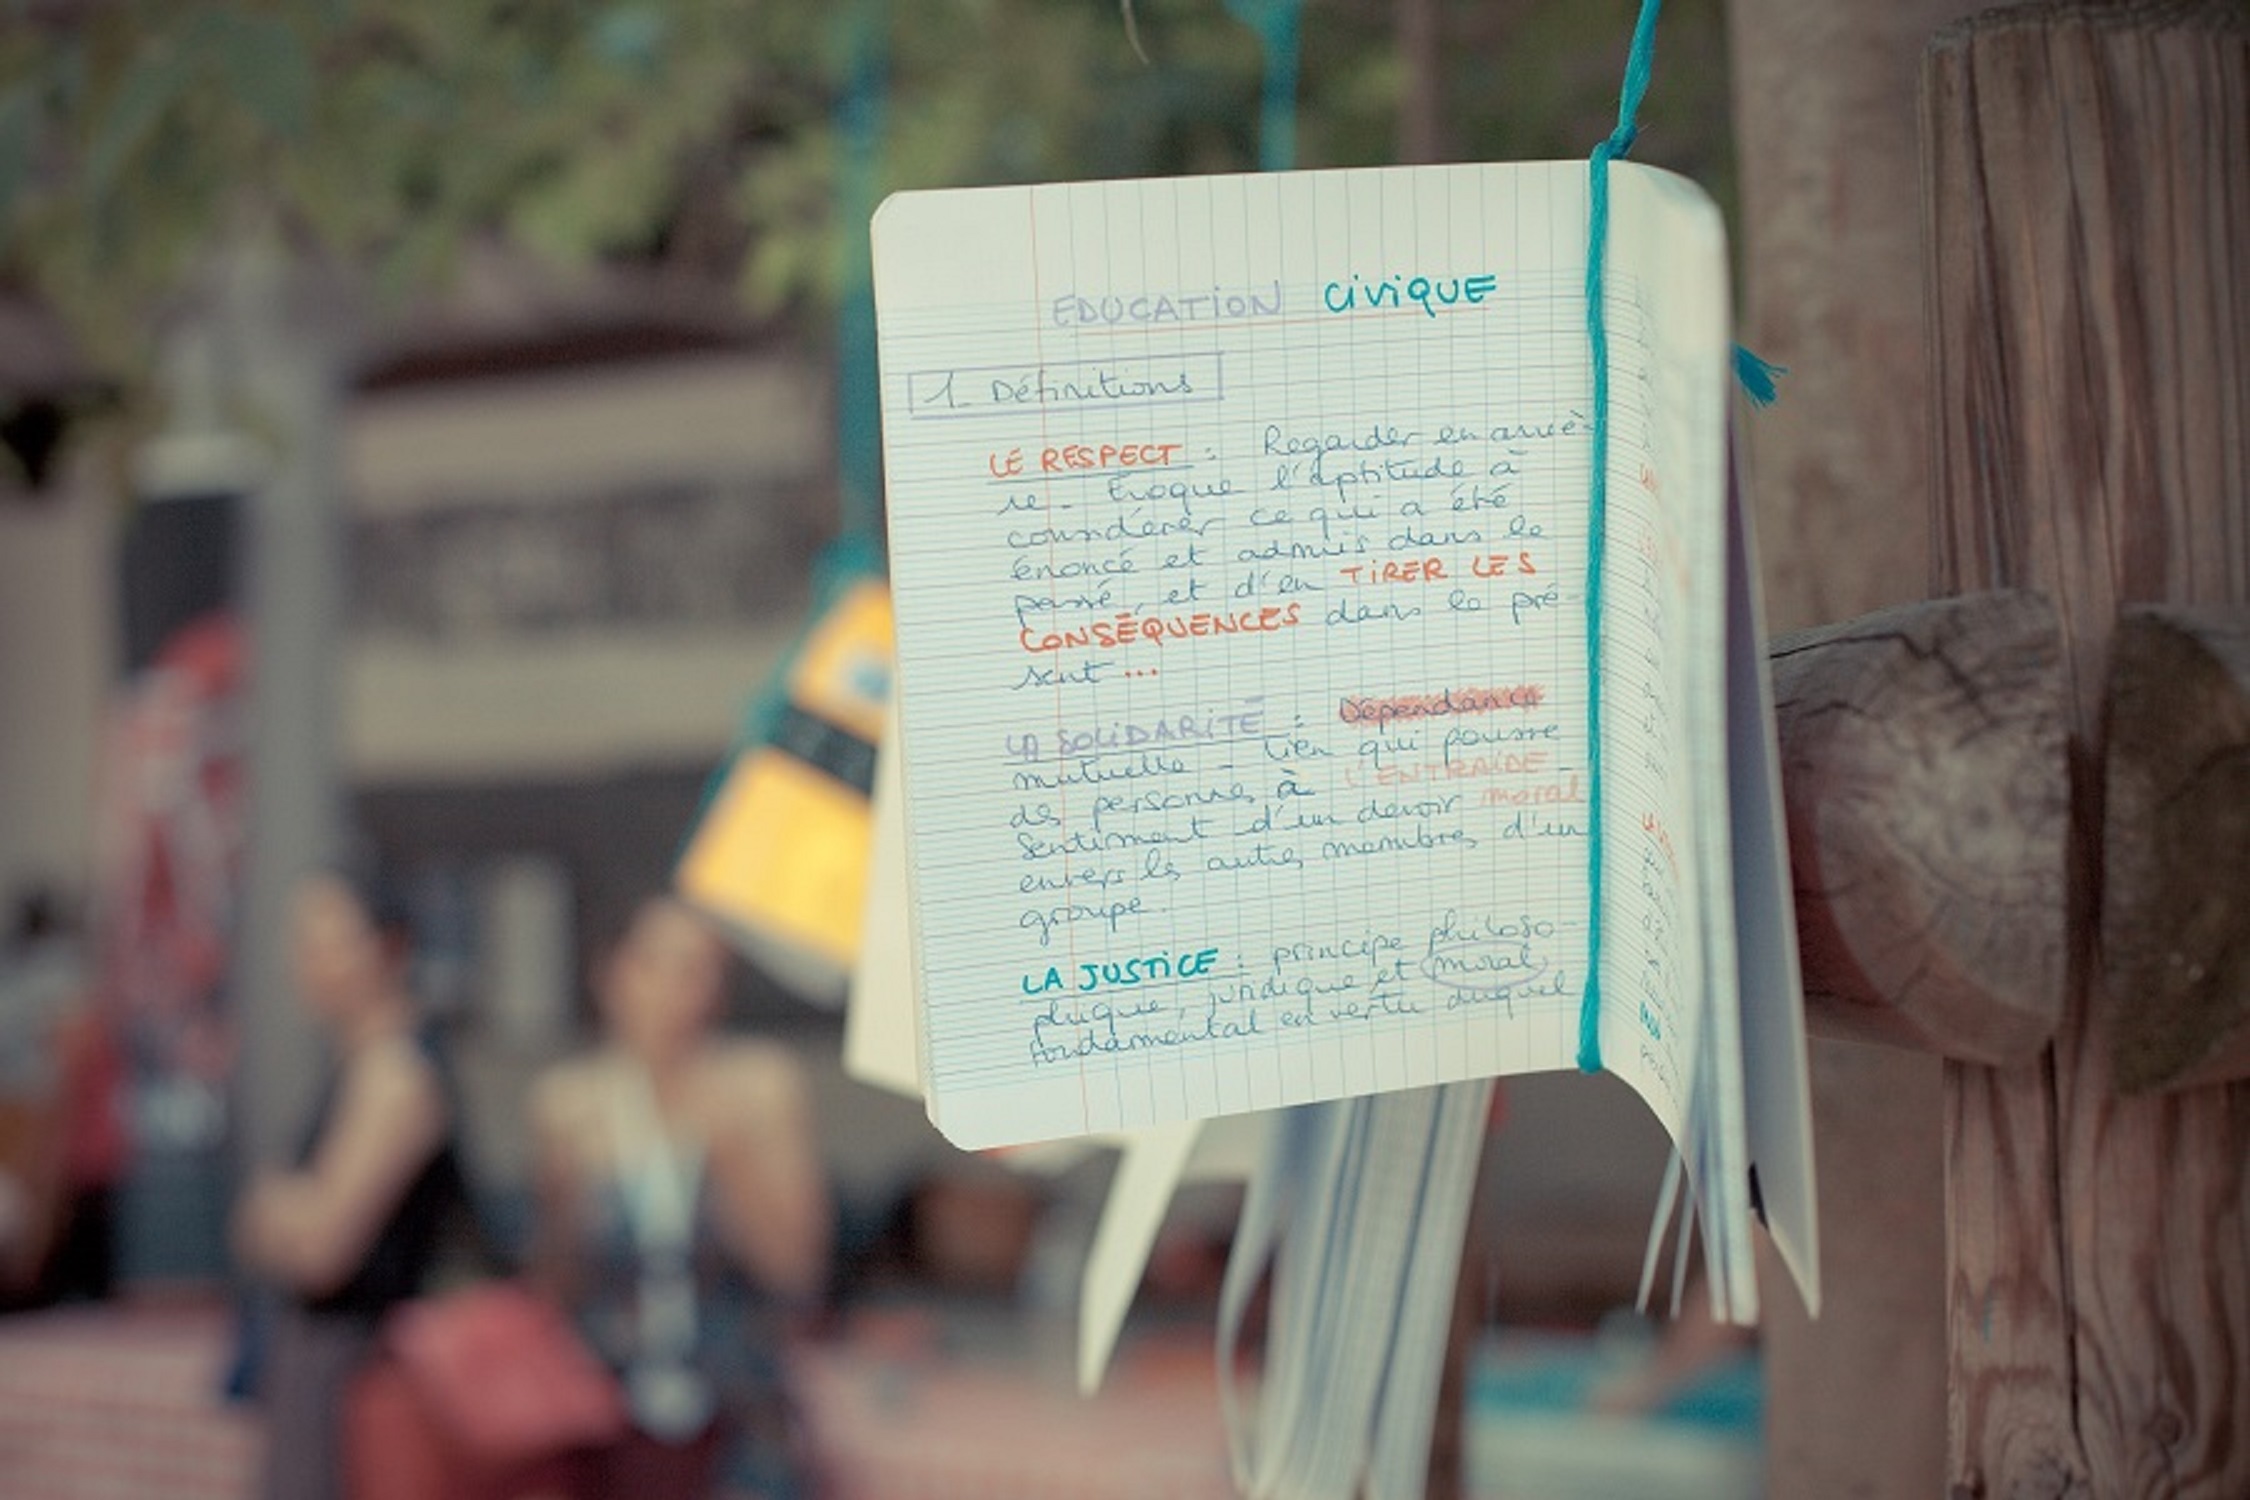 EDUCATION CiviQUE
1_ Définitions
LE RESPECT : Regarder en arriè-
re_ Évoque l'aptitude à
considérer ce qui a été
énoncé et admis dans le
passé, et d'en TiRER LES
CONSÉQUENCES dans le pré-
sent ...
LA SOLiDARiTÉ : Dépendance
mutuelle _ Lien qui pousse
des personnes à L'ENTRAIDE_
Sentiment d'un devoir moral
envers les autres membres d'un
groupe.
LA JUSTiCE : principe philoso-
phique, juridique et moral
fondamental en vertu duquel